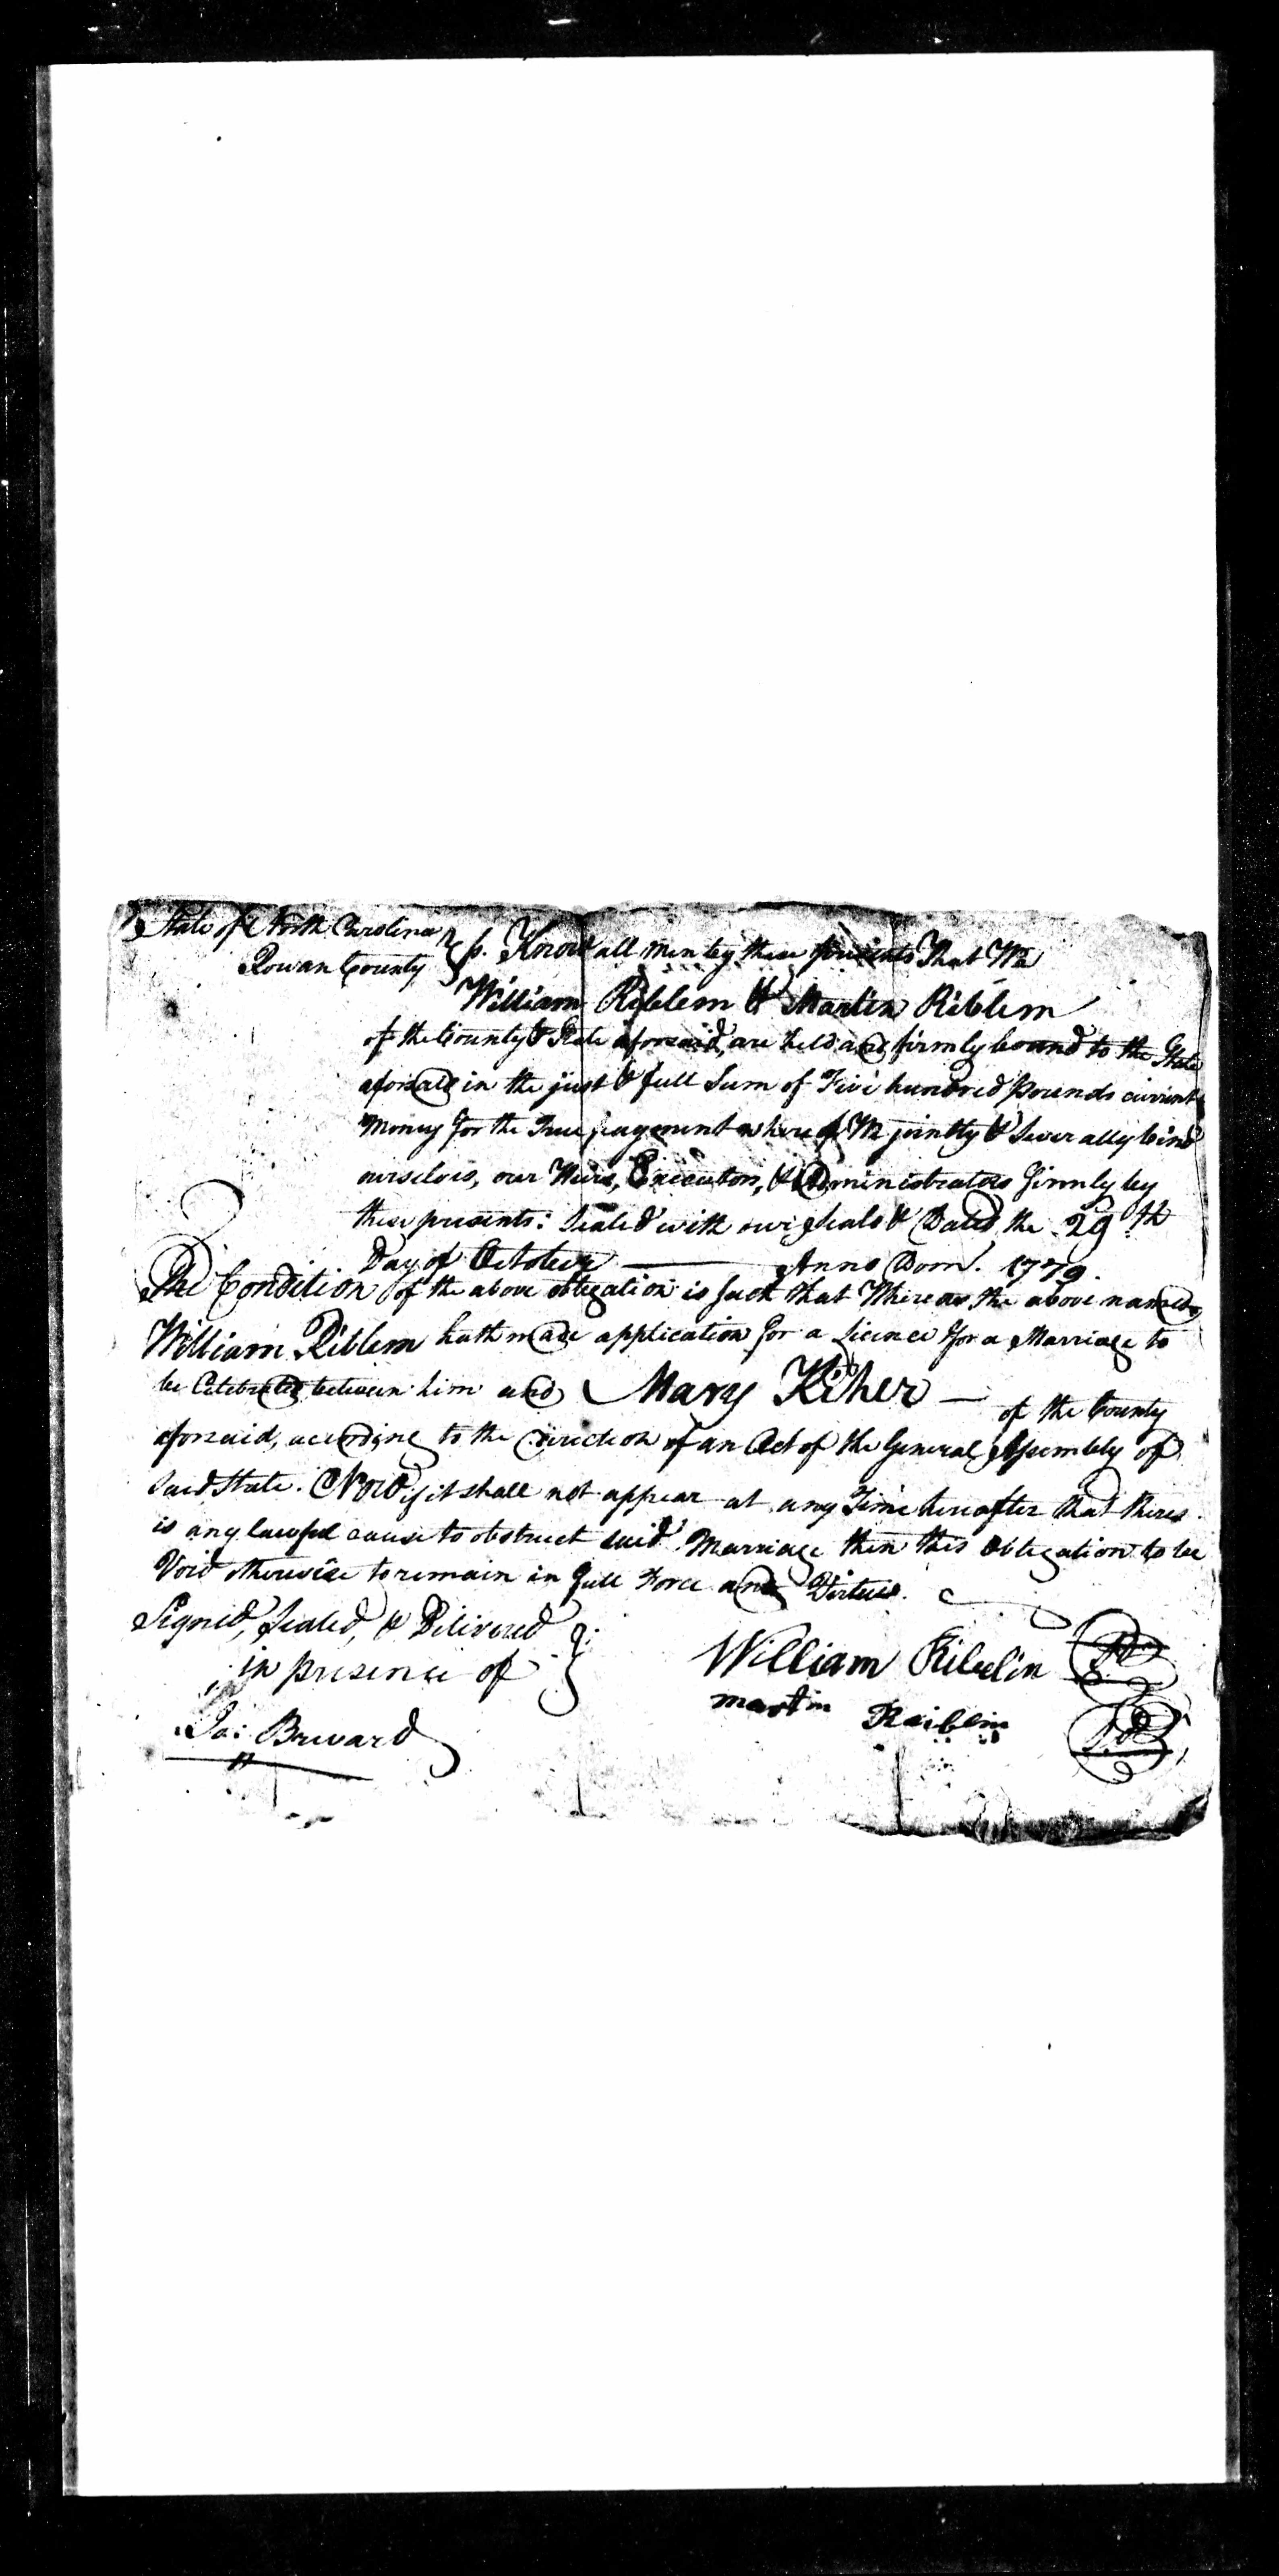 State of North Carolina
Rowan County } ss. Know all men by these presents That We
William Riblem & Martin Riblem
of the County & State aforesaid, are held and firmly bound to the State
aforesaid in the just & full Sum of Five hundred pounds current
Money for the True payment whereof We jointly & Severally bind
ourselves, our Heirs, Executors, & Administrators firmly by
these presents: Sealed with our Seals & Dated the 29th
Day of October — Anno Dom. 1779.
The Condition of the above obligation is such that Whereas the above named
William Riblem hath made application for a Licence for a Marriage to
be Celebrated between him and Mary Kiher — of the County
aforesaid, according to the direction of an Act of the General Assembly of
said State. Now if it shall not appear at any Time hereafter that there
is any lawful cause to obstruct said Marriage then this Obligation to be
Void otherwise to remain in full Force and Virtue.
Signed, Sealed, & Delivered
in presence of
Ja: Brevard
William Ribelin
martin Raiblin